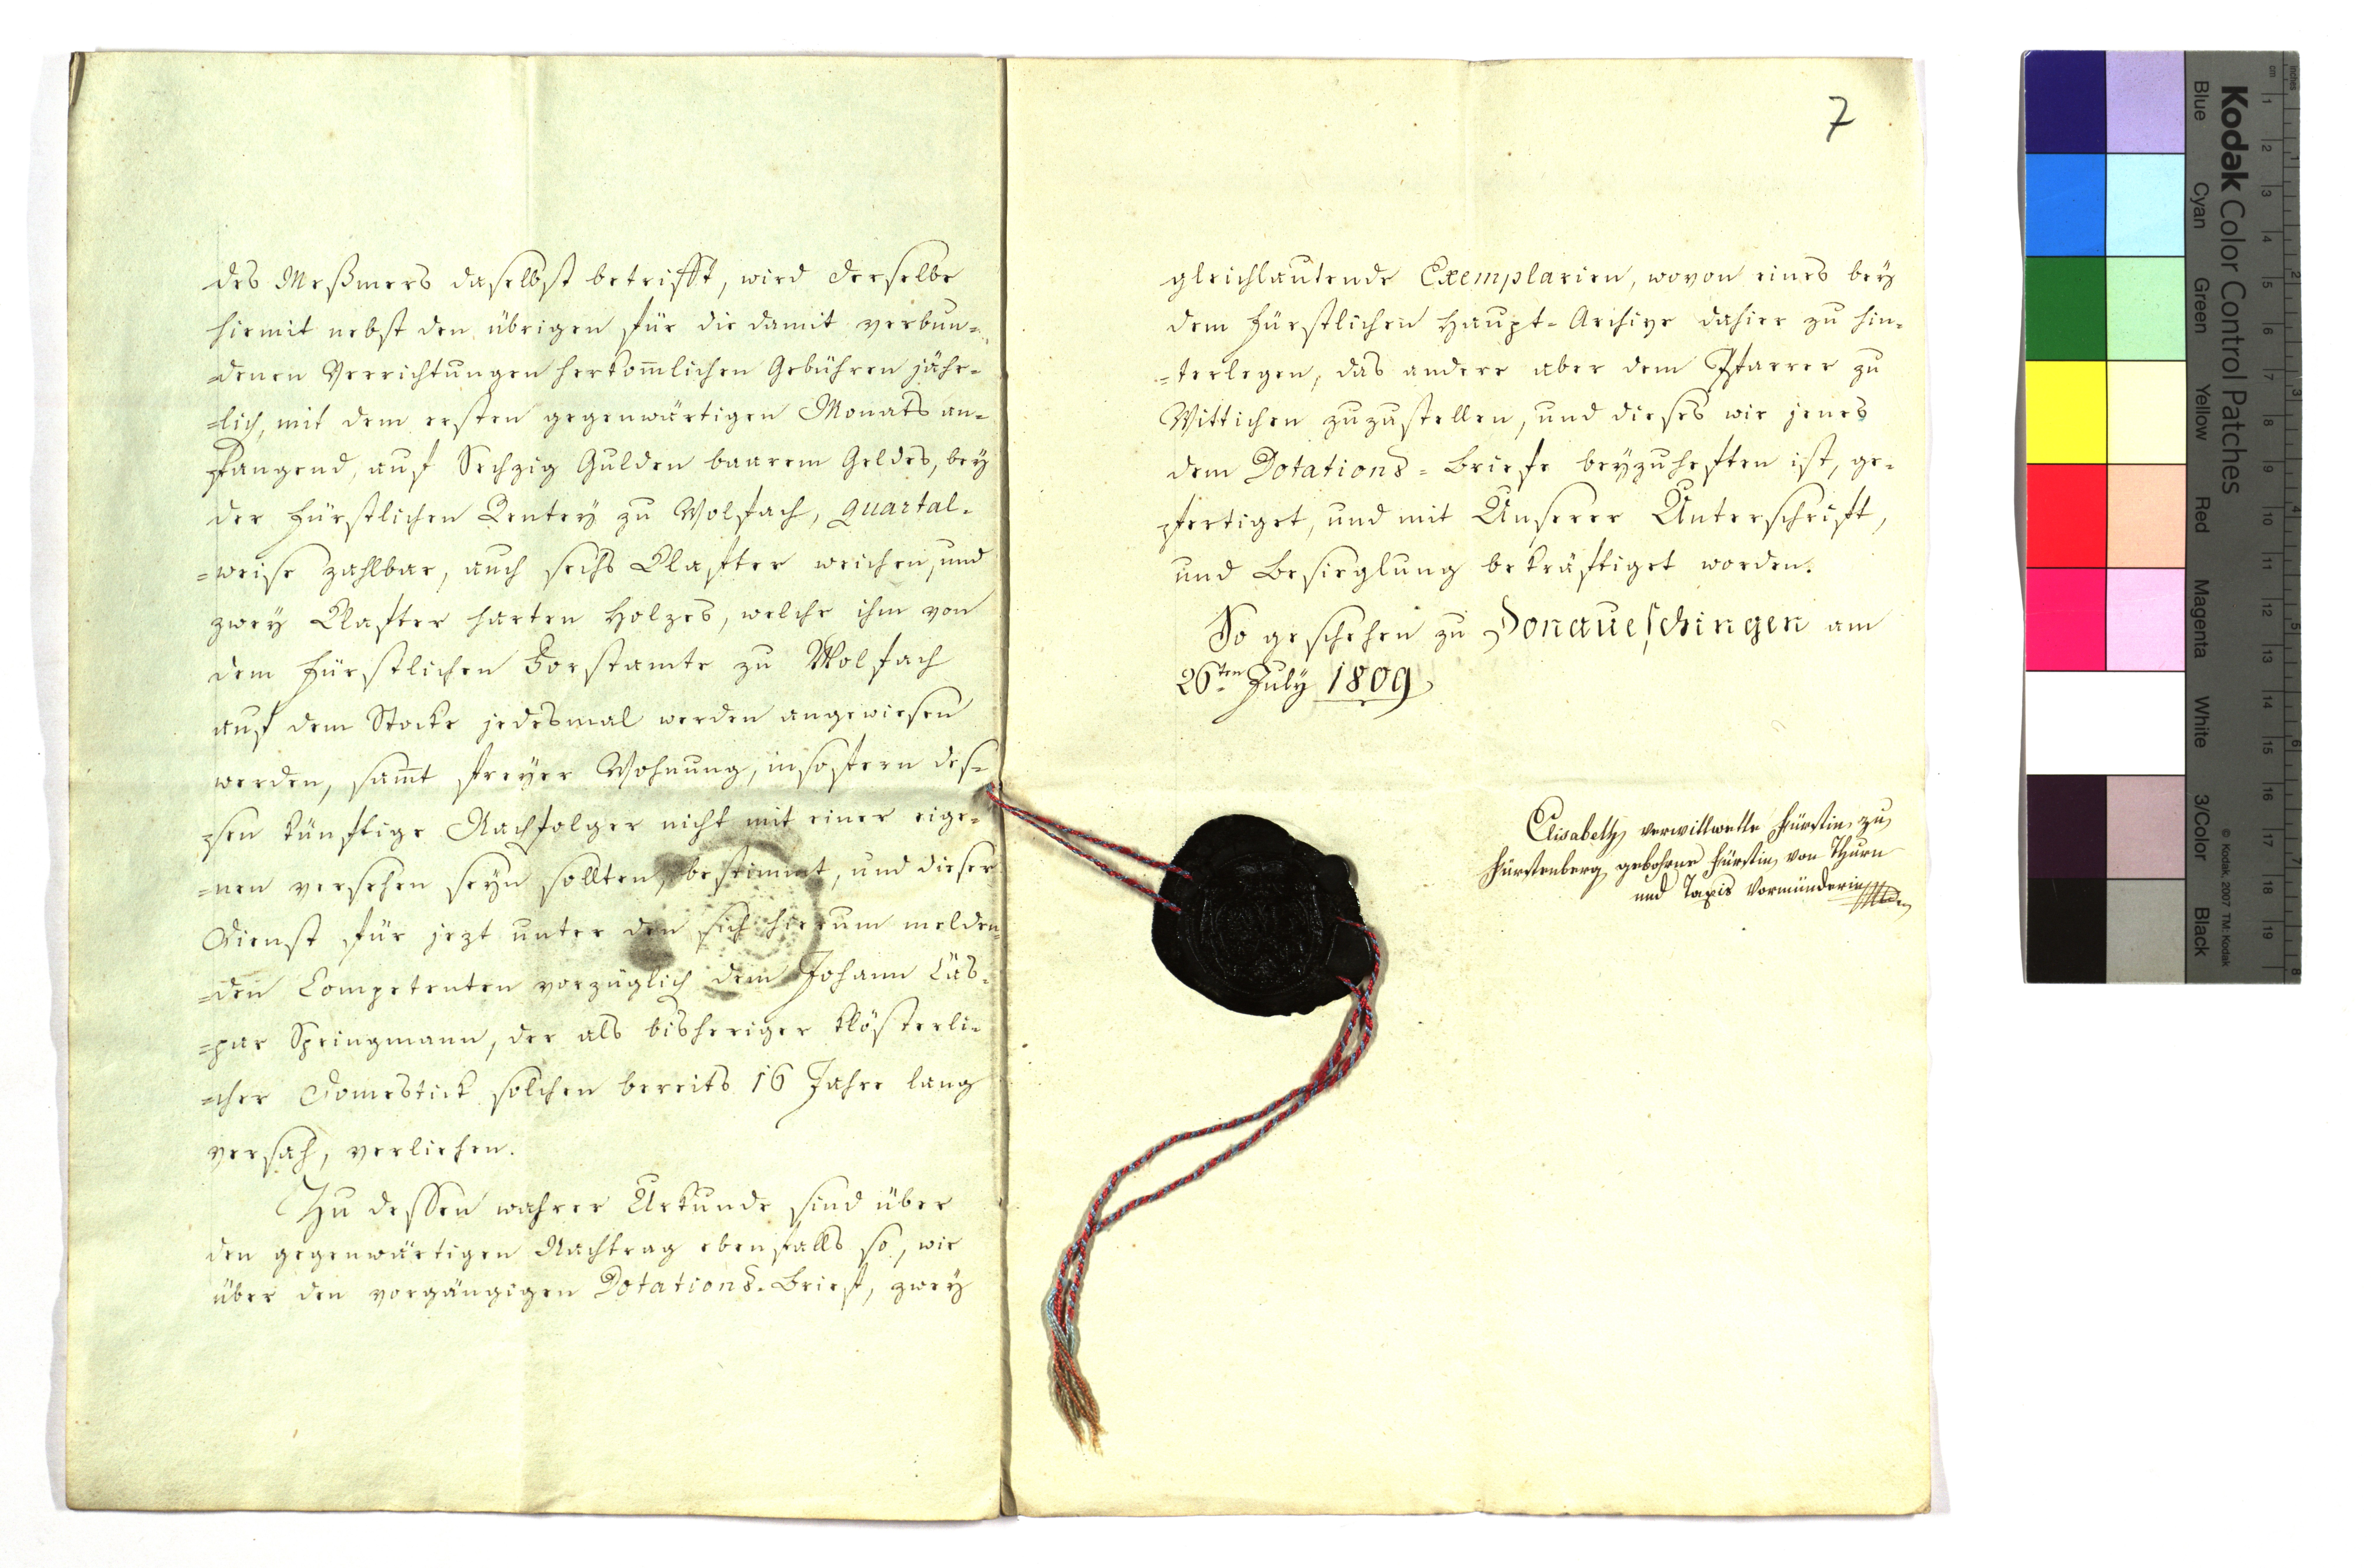 des Meßmers daselbst betrifft, wird derselbe
hiemit nebst den übrigen für die damit verbun=
=denen Verrichtungen herkom̄lichen Gebühren jähr=
=lich, mit dem ersten gegenwärtigen Monats an=
fangend, auf Sechzig Gulden baarem Geldes, bey
der Fürstlichen Rentey zu Wolfach, quartal=
=weise zahlbar, auch sechs Klafter weichen, und
zwey Klafter harten Holzes, welche ihm von
dem Fürstlichen Forstamte zu Wolfach
auf dem Stocke jedesmal werden angewiesen
werden, sam̄t freyer Wohnung, insofern des=
=sen künftige Nachfolger nicht mit einer eige=
=nen versehen seyn sollten, bestimmt, und dieser
Dienst für jezt unter den sich hierum melden=
=den Competenten vorzüglich dem Johann Cas=
=par Springmann, der als bisheriger klösterli=
=cher Domestick solchen bereits 16 Jahre lang
versah, verliehen.
Zu dessen wahrer Urkunde sind über
den gegenwärtigen Nachtrag ebenfalls so, wie
über den vorgängigen Dotations=Brief, zwey
7
gleichlautende Exemplarien, wovon eines bey
dem Fürstlichen Haupt=Archive dahier zu hin=
=terlegen, das andere aber dem Pfarrer zu
Wittichen zuzustellen, und dieses wie jenes
dem Dotations=Briefe beyzuheften ist, ge=
fertiget, und mit Unserer Unterschrift,
und Besieglung bekräftiget worden.
So geschehen zu Donaueschingen am
26ten July 1809
Elisabeth verwittwette Fürstin zu
Fürstenberg gebohrne Fürstin von Thurn
und Taxis Vormünderin
Kodak Color Control Patches
Blue Cyan Green Yellow Red Magenta White 3/Color Black
© Kodak, 2007 TM: Kodak
inches 1 2 3 4 5 6 7 8
cm 1 2 3 4 5 6 7 8 9 10 11 12 13 14 15 16 17 18 19